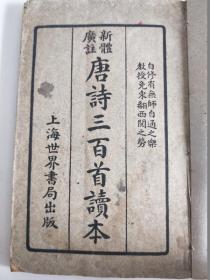 自修有無師自通之樂
教授免東翻西閱之勞
新體
廣註
唐詩三百首讀本
上海世界書局出版